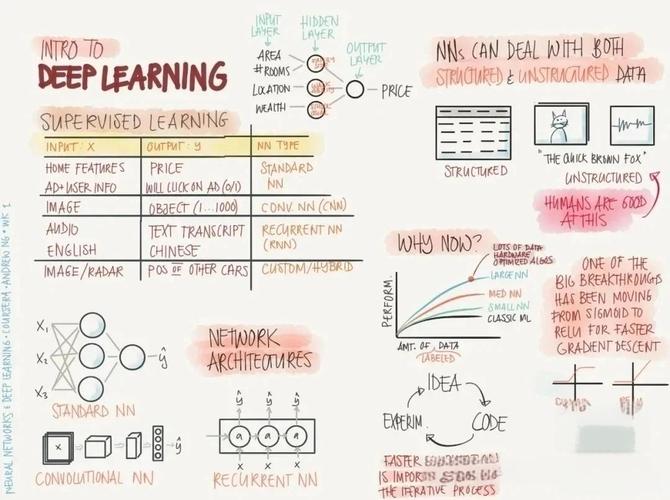 INTRO TO
DEEP LEARNING
INPUT LAYER
HIDDEN LAYER
OUTPUT LAYER
AREA
#ROOMS
LOCATION
WEALTH
PRICE
SUPERVISED LEARNING
INPUT: X OUTPUT: Y NN TYPE
HOME FEATURES PRICE STANDARD
AD+USER INFO WILL CLICK ON AD (0/1) NN
IMAGE OBJECT (1...1000) CONV. NN (CNN)
AUDIO TEXT TRANSCRIPT RECURRENT NN
ENGLISH CHINESE (RNN)
IMAGE/RADAR POS OF OTHER CARS CUSTOM/HYBRID
NNs CAN DEAL WITH BOTH
STRUCTURED & UNSTRUCTURED DATA
STRUCTURED
"THE QUICK BROWN FOX"
UNSTRUCTURED
HUMANS ARE GOOD
AT THIS
WHY NOW?
LOTS OF DATA
HARDWARE
OPTIMIZED ALGOS
LARGE NN
MED NN
SMALL NN
CLASSIC ML
PERFORM.
AMT. OF DATA
LABELED
ONE OF THE
BIG BREAKTHROUGHS
HAS BEEN MOVING
FROM SIGMOID TO
RELU FOR FASTER
GRADIENT DESCENT
IDEA
EXPERIM.
CODE
FASTER
IS
THE ITERATIVE PROCESS
NETWORK
ARCHITECTURES
X₁
X₂
X₃
ŷ
STANDARD NN
X
ŷ
CONVOLUTIONAL NN
ŷ ŷ ŷ
a a a
X X X
RECURRENT NN
NEURAL NETWORKS & DEEP LEARNING · COURSERA · ANDREW NG · WK 1